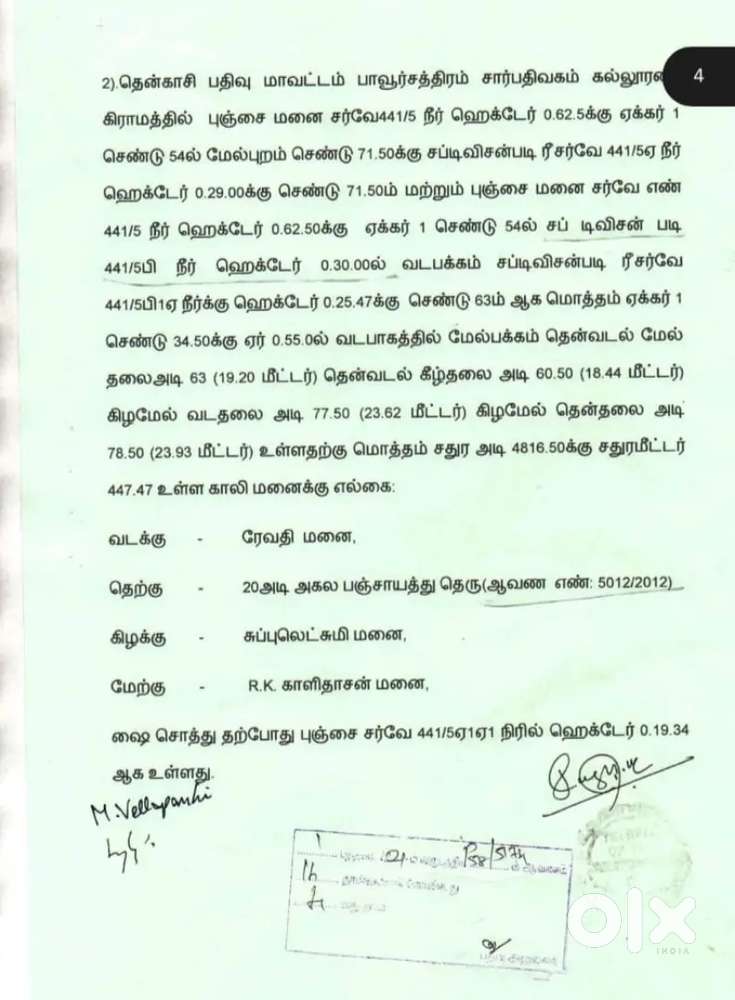 4
2).தென்காசி பதிவு மாவட்டம் பாவூர்சத்திரம் சார்பதிவகம்
கிராமத்தில் புஞ்சை மனை சர்வே441/5 நீர் ஹெக்டேர் 0.62.5க்கு ஏக்கர் 1
செண்டு 54ல் மேல்புறம் செண்டு 71.50க்கு சப்டிவிசன்படி ரீசர்வே 441/5ஏ நீர்
ஹெக்டேர் 0.29.00க்கு செண்டு 71.50ம் மற்றும் புஞ்சை மனை சர்வே எண்
441/5 நீர் ஹெக்டேர் 0.62.50க்கு ஏக்கர் 1 செண்டு 54ல் சப் டிவிசன் படி
441/5பி நீர் ஹெக்டேர் 0.30.00ல் வடபக்கம் சப்டிவிசன்படி ரீசர்வே
441/5பி1ஏ நீர்க்கு ஹெக்டேர் 0.25.47க்கு செண்டு 63ம் ஆக மொத்தம் ஏக்கர் 1
செண்டு 34.50க்கு ஏர் 0.55.0ல் வடபாகத்தில் மேல்பக்கம் தென்வடல் மேல்
தலைஅடி 63 (19.20 மீட்டர்) தென்வடல் கீழ்தலை அடி 60.50 (18.44 மீட்டர்)
கிழமேல் வடதலை அடி 77.50 (23.62 மீட்டர்) கிழமேல் தென்தலை அடி
78.50 (23.93 மீட்டர்) உள்ளதற்கு மொத்தம் சதுர அடி 4816.50க்கு சதுரமீட்டர்
447.47 உள்ள காலி மனைக்கு எல்கை:
வடக்கு - ரேவதி மனை,
தெற்கு - 20அடி அகல பஞ்சாயத்து தெரு(ஆவண எண்: 5012/2012)
கிழக்கு - சுப்புலெட்சுமி மனை,
மேற்கு - R.K. காளிதாசன் மனை,
ஷை சொத்து தற்போது புஞ்சை சர்வே 441/5ஏ1ஏ1 நிரில் ஹெக்டேர் 0.19.34
ஆக உள்ளது.
M.Vellapandi
olx
INDIA